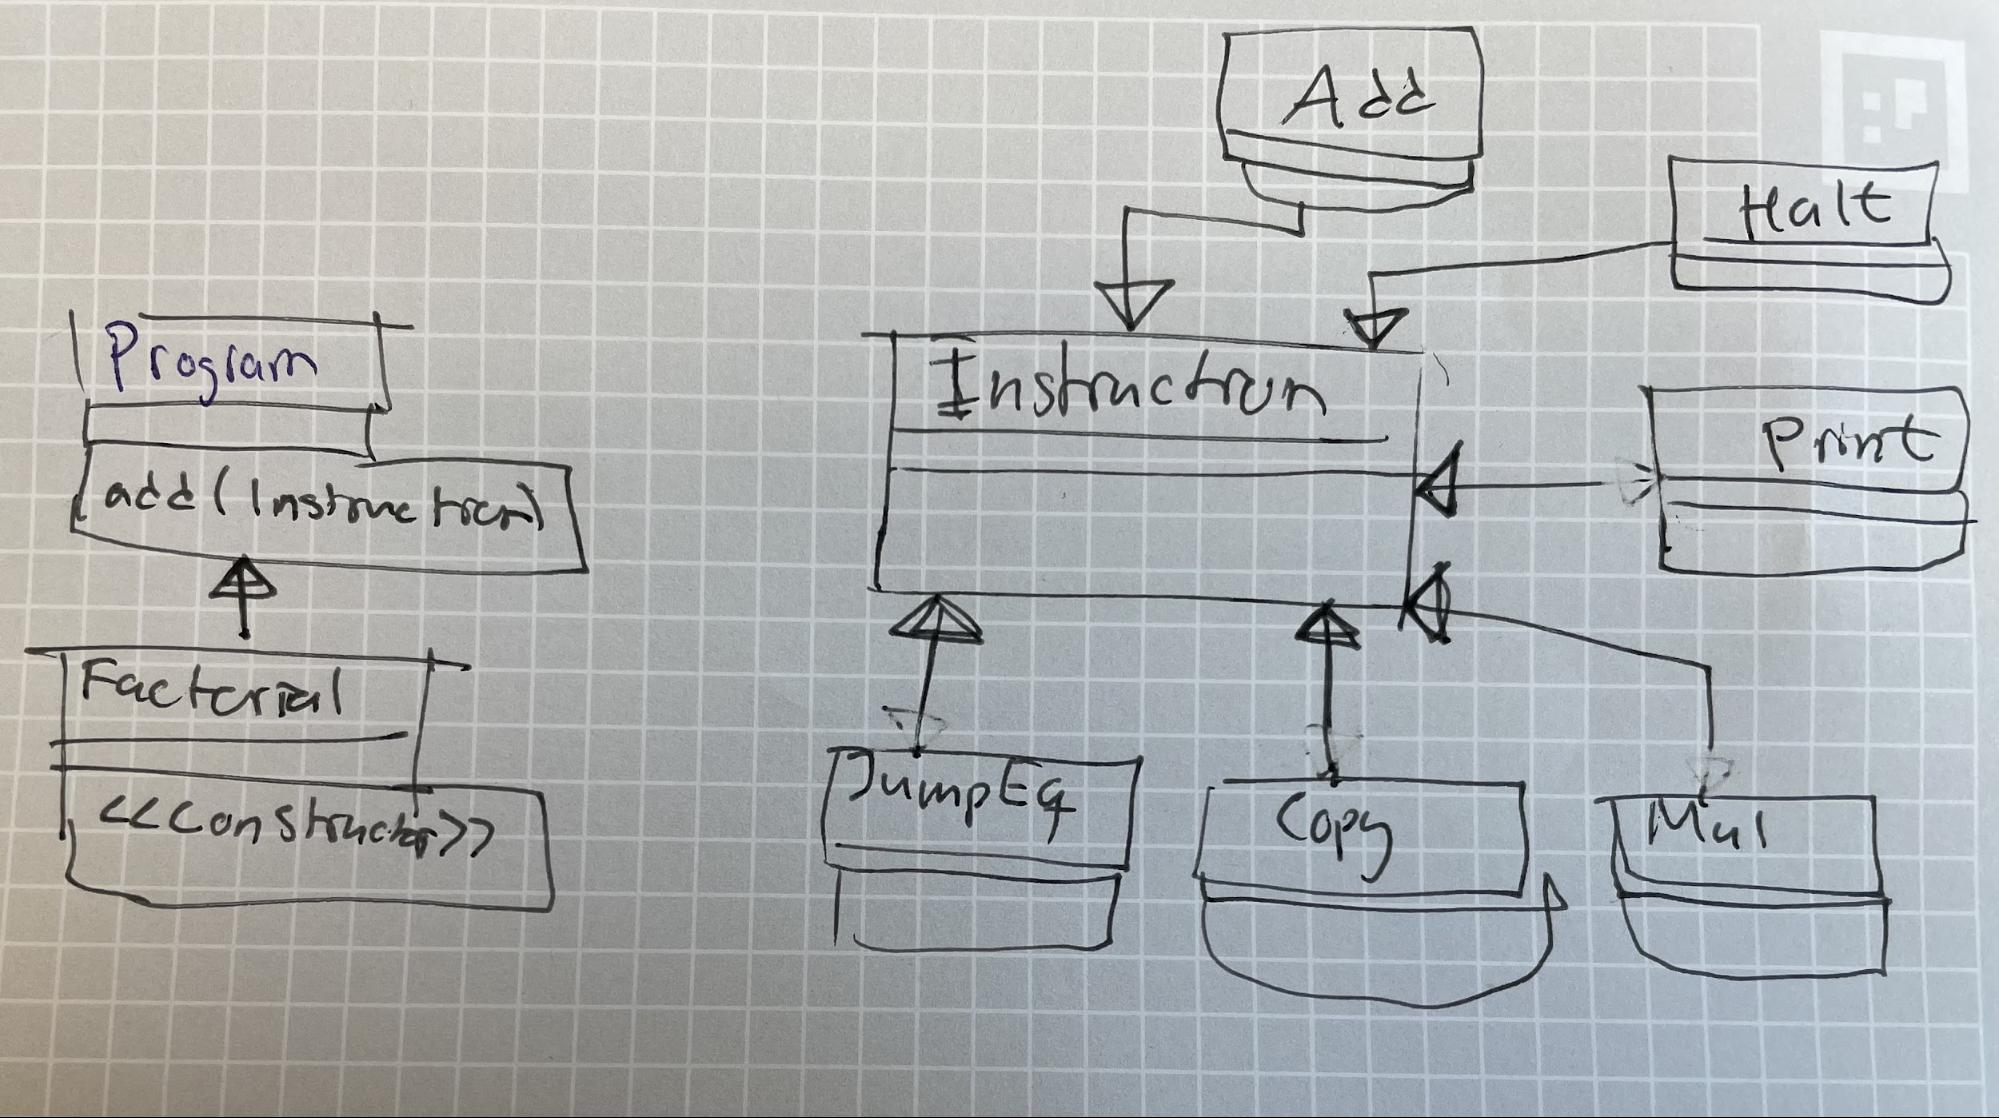 Add
Halt
Program
add(Instruction)
Factorial
<<constructor>>
Instruction
Print
JumpEq
Copy
Mul